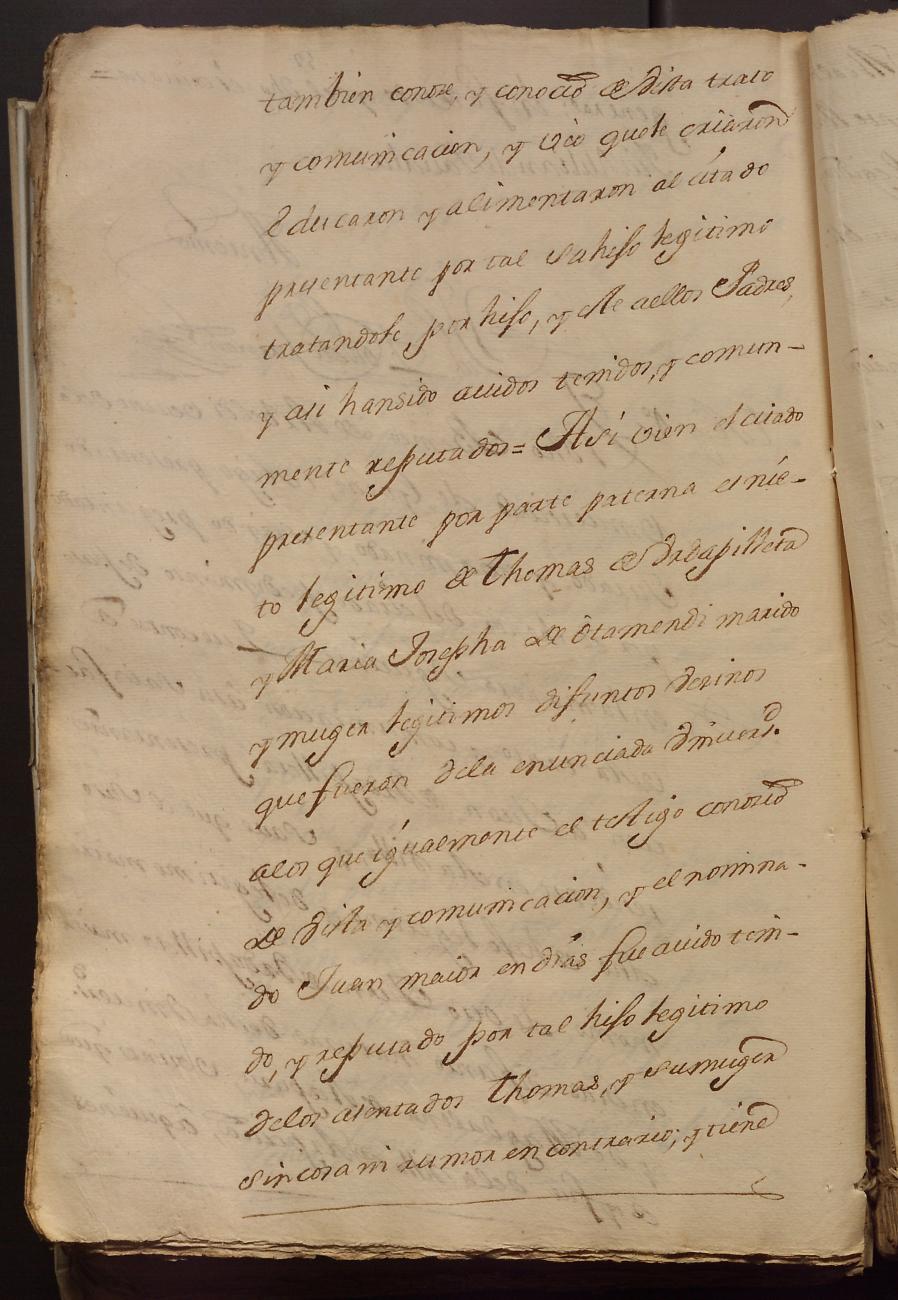 tambien conoze, y conocio de vista trato
y comunicacion, y vio que le criaron
Educaron y alimentaron al citado
presentante por tal su hijo legitimo
tratandose por hijo, y de aellos Padres,
y asi hansido auidos tenidos, y comun-
mente reputados= Asi vien el citado
presentante por parte paterna es nie-
to legitimo de Thomas de Urdapilleta
y Maria Josepha de Otamendi marido
y muger legitimos difuntos vezinos
que fueron dela enunciada Vniuersd.
alos que igualmente el testigo conocio
de vista y comunicacion, y el nomina-
do Juan maior en dias fue auido teni-
do, y reputado por tal hijo legitimo
delos asentados Thomas, y su muger
sin cosa ni rumor en contrario; y tiene